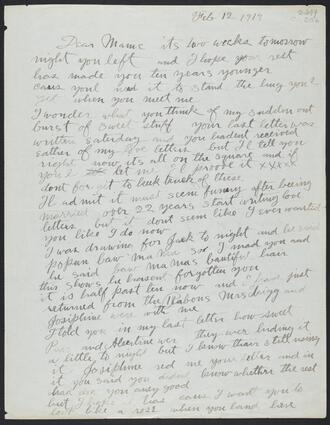 Feb 12 1919
Dear Mame its two weeks tomorrow
night you left and I hope your rest
has made you ten years younger
cause youl need it to stand the hug you'l
get when you meet me
I wonder what you think of my sudden out
burst of sweet stuff your last letter was
written saturday and you hadent received
eather of my love letters but I'l tell you
right now its all on the square and if
you'l let me I'l proove it xxxxx
dont forget to keek track of these
I'l admit it must seem funny after beeing
married over 22 years start writing love
letters but it dont seem like I ever wanted
you like I do now
I was drawing for Jack to night and he said
popun baw mama so I mad you and
he said baw mamas bautiful hair
this shows he hasent forgotten you
it is half past ten now and I have just
returned from the Nabons Mrs and
Josiphine were with me
I told you in my last letter how sweet
and were they were
a little to night but I know thair still using
it Josiphine red me your letter and in
it you said you didnt know whether the rest
had don you any good
but I hope it has cause I want you to
look like a rose when you land here